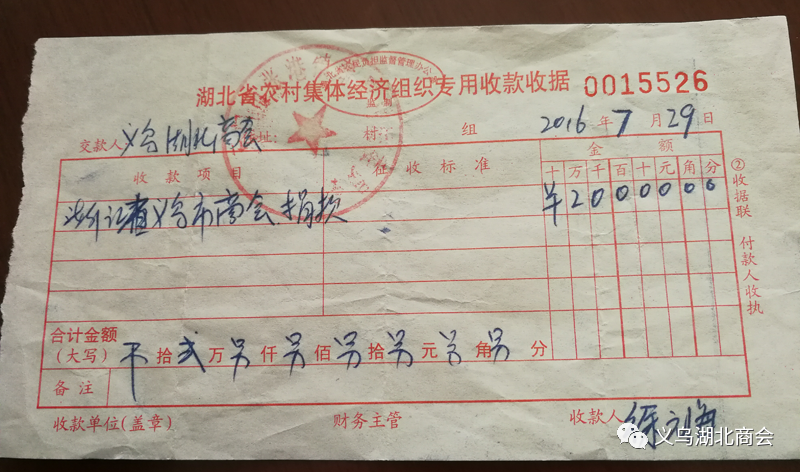 湖北省农村集体经济组织专用收款收据 0015526
交款人 义乌湖北商会 址: 村 组 2016 年 7 月 29 日
收款项目 征收标准 金额
十 万 千 百 十 元 角 分
浙江省义乌市商会捐款 ¥2000000
合计金额
(大写) 拾 贰 万 另 仟 另 佰 另 拾 另 元 另 角 另 分
备注
收款单位(盖章) 财务主管 收款人
②收据联 付款人收执
义乌湖北商会